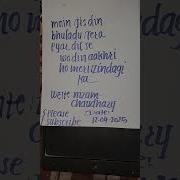 main jis din
bhuladu tera
pyar dil se
wo din aakhri
ho meri zindagi
ka
write nizam
chaudhary
please
subscribe
12-09-2025